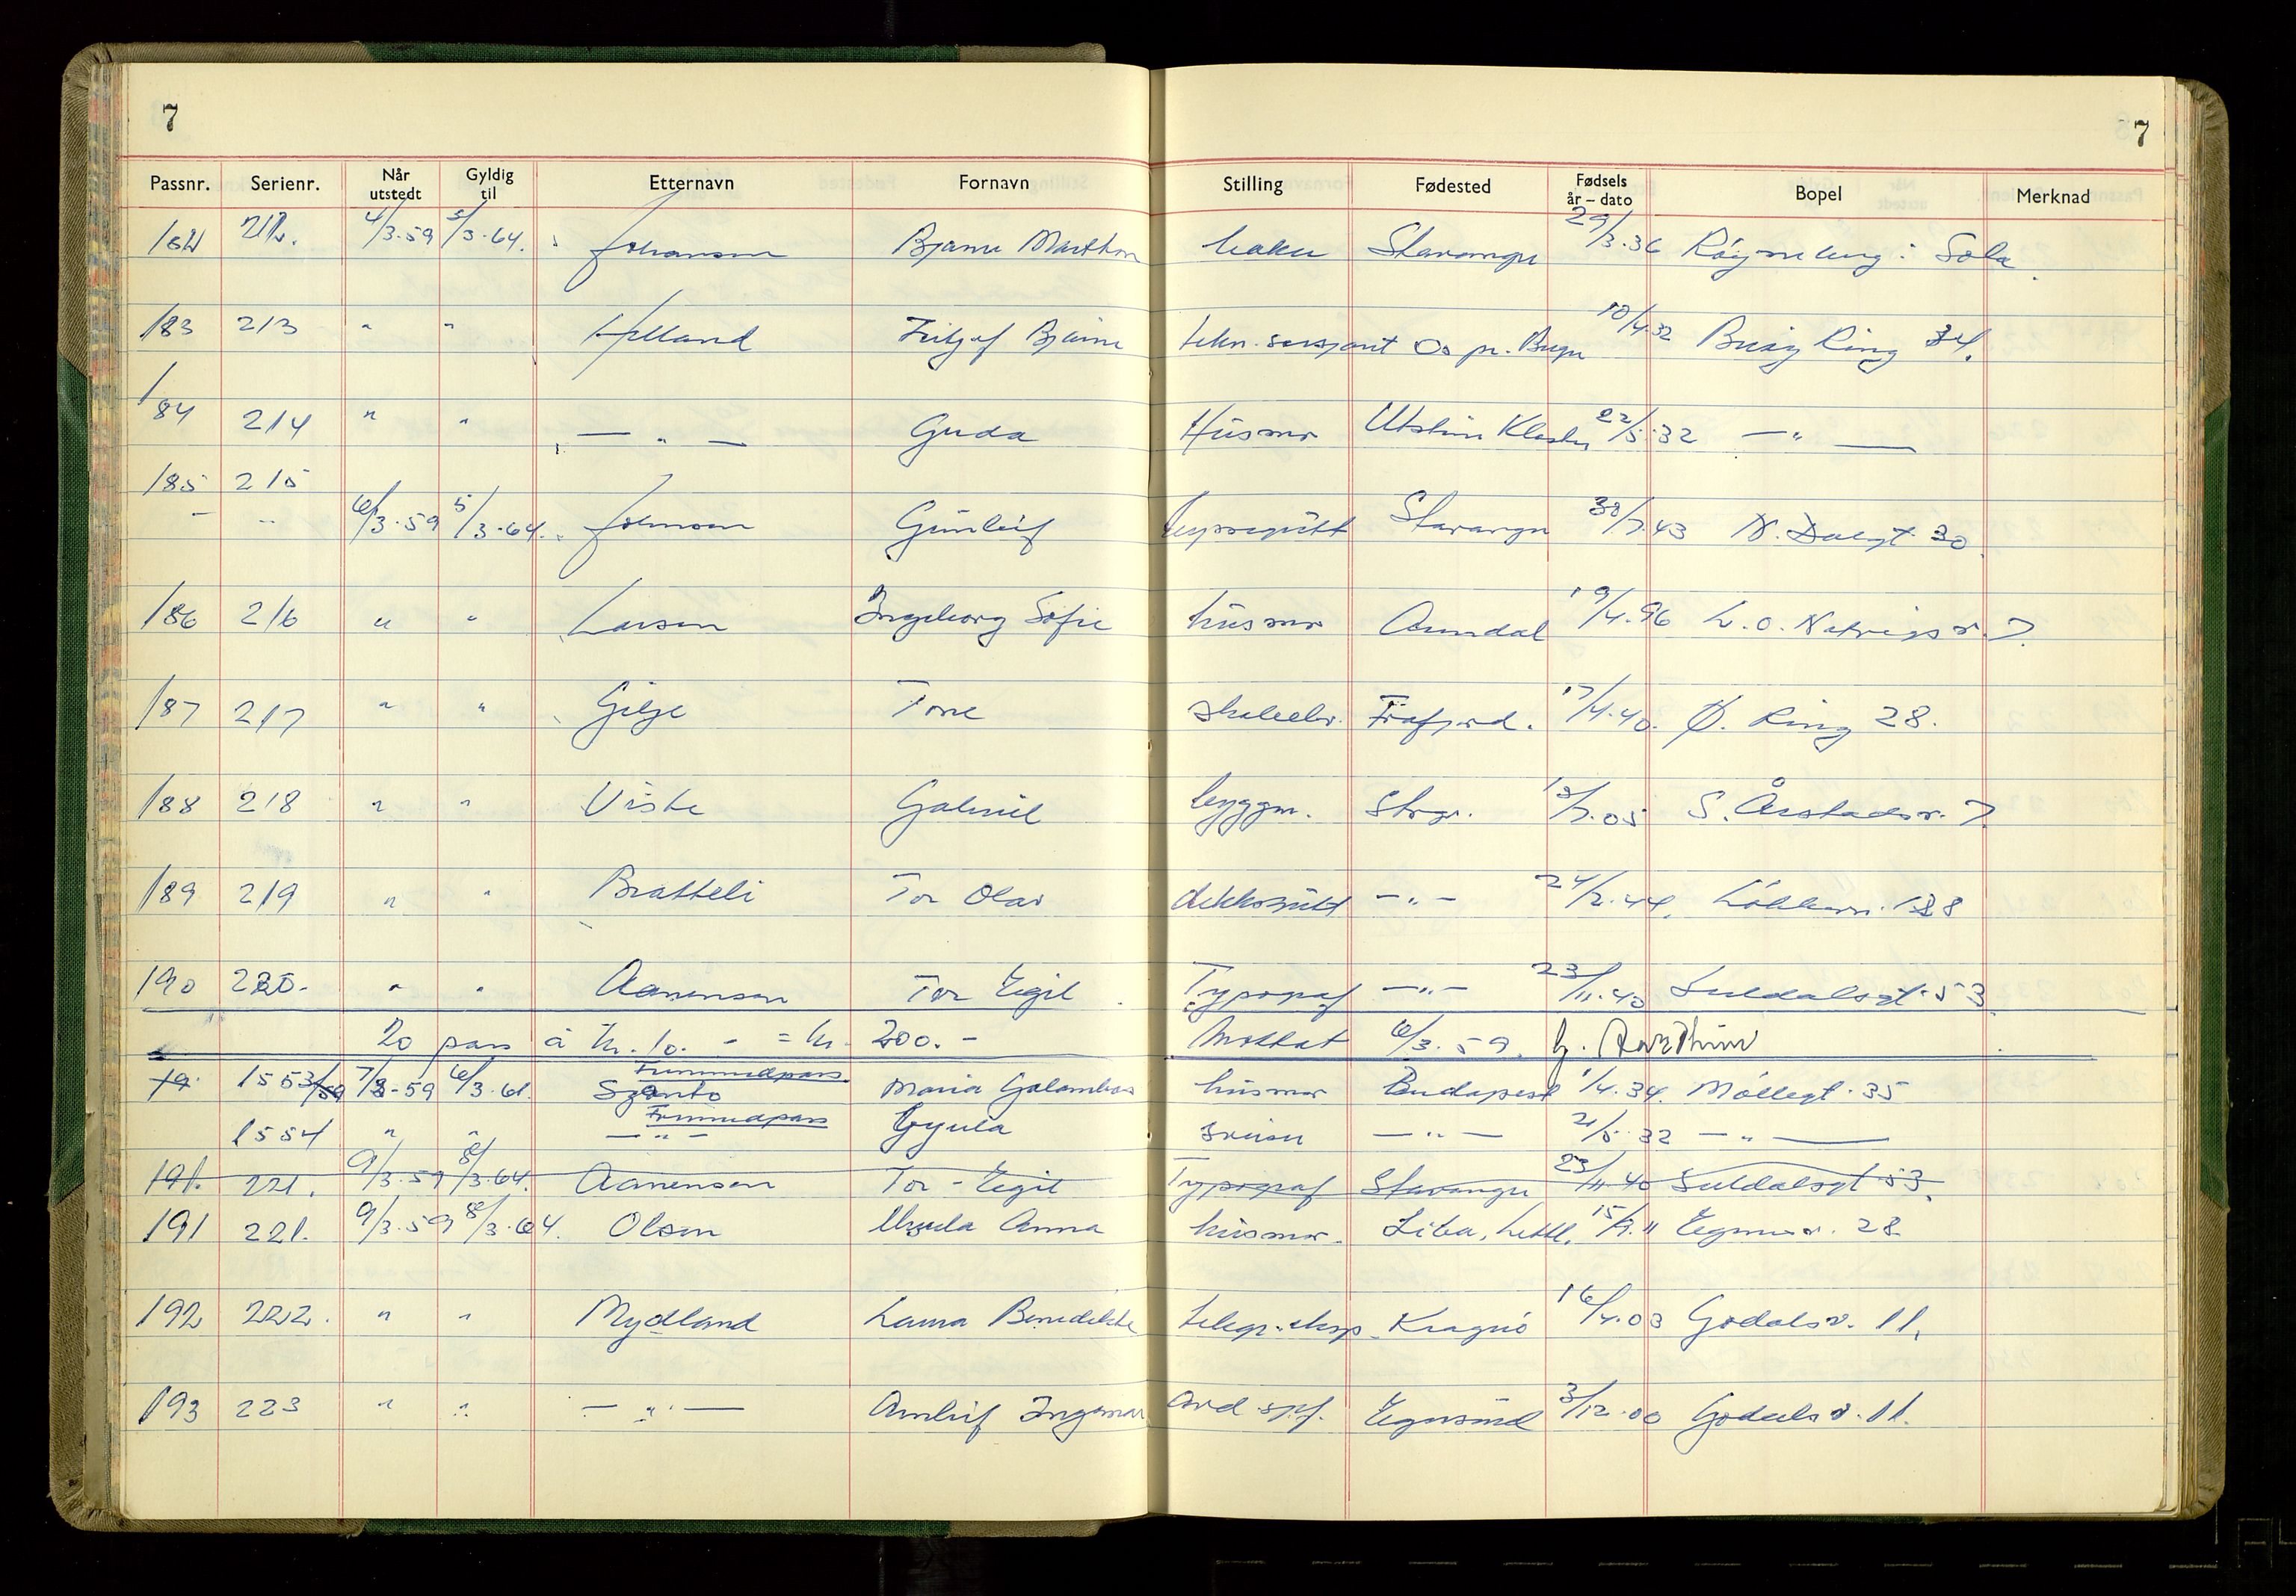 7 7
Passnr. Serienr. Når utstedt Gyldig til Etternavn Fornavn Stilling Fødested Fødsels år – dato Bopel Merknad
182 212. 4/3-59 3/3-64. Johansen Bjarne Marthon Stavanger 29/3.36 Sola
183 213 " " Helland Fritjof Bjarne tekn. sersjant Os pr. Bergen 10/4.32 Buøy Ring 34.
184 214 " " — " — Guda Husmor Utstein Kloster 22/5.32 — " —
185 215
- " 6/3-59 5/3-64. Johnsen Gunleif Stavanger 30/7.43 N. Dalgt. 30
186 216 " " Larsen Ingeborg Sofie husmor Arendal 19/4.96 7.
187 217 " " Gilje Tone skoleelev. Frafjord. 17/4.40. Ø. Ring 28.
188 218 " " Viste Gabriel byggm. Stvgr. 7.05 S. Årstadsv. 7.
189 219 " " Bratteli Tor Olav dekksgutt — " — 24/2.44.
190 220. " " Aanensen Tor Egil Typograf — " — 23/11.40 Suldalsgt. 53
20 pass à kr. 10. - = kr. 200. - Mottat 6/3. 59.
1553/59 7/3-59 6/3.61. Szanto Fremmedpass Maria Galambos husmor Budapest 1/4.34. Møllegt. 35
1554 " " — " — Fremmedpass Gyula — " — 21/5.32 — " —
191. 221. 9/3.59 8/3.64. Aanensen Tor - Egil Typograf Stavanger 23/11.40 Suldalsgt. 53.
191 221. 9/3.59 8/3.64. Olsen Ursula Anna husmor. Liba, Lettl. 28
192 222. " " Mydland Laura Benedikte telegr.eksp. Kragerø 16/4.03 Godalsv. 11.
193 223 " " — " — Arnleif Ingemar Egersund 3/12.00 Godalsv. 11.